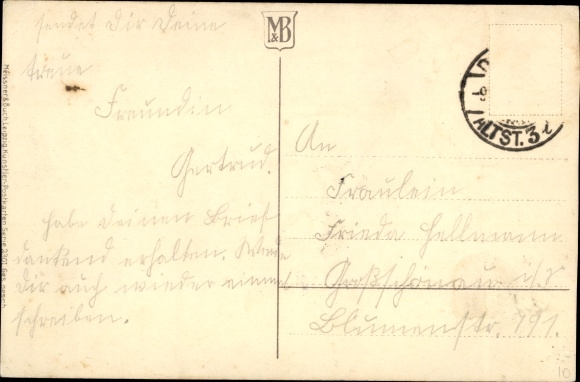 sendet Dir Deine
treue
Freundin
Gertrud.
habe deinen Brief
dankend erhalten. Werde
Dir auch wieder einmal
schreiben.
M&B
ALTST. 3
An
Fräulein
Frieda Hellmann
Großschönau i/S
Blumenstr. 191.
Meissner & Buch, Leipzig Künstler-Postkarten Serie
10